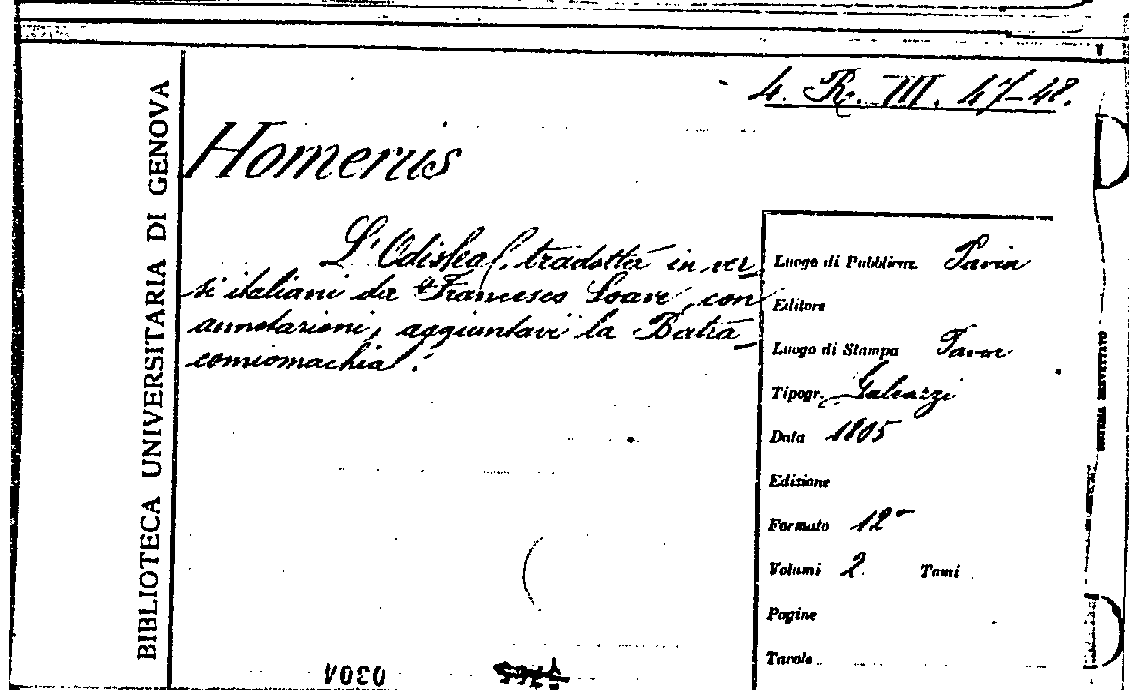 4. R. III. 47-48.
BIBLIOTECA UNIVERSITARIA DI GENOVA
Homerus
L'Odissea, tradotta in ver
si italiani da Francesco Soave, con
annotazioni, aggiuntavi la Batra
comiomachia.
Luogo di Pubblicaz. Pavia
Editore
Luogo di Stampa Pavia
Tipogr. Galeazzi
Data 1805
Edizione
Formato 12°
Volumi 2. Tomi
Pagine
Tavole